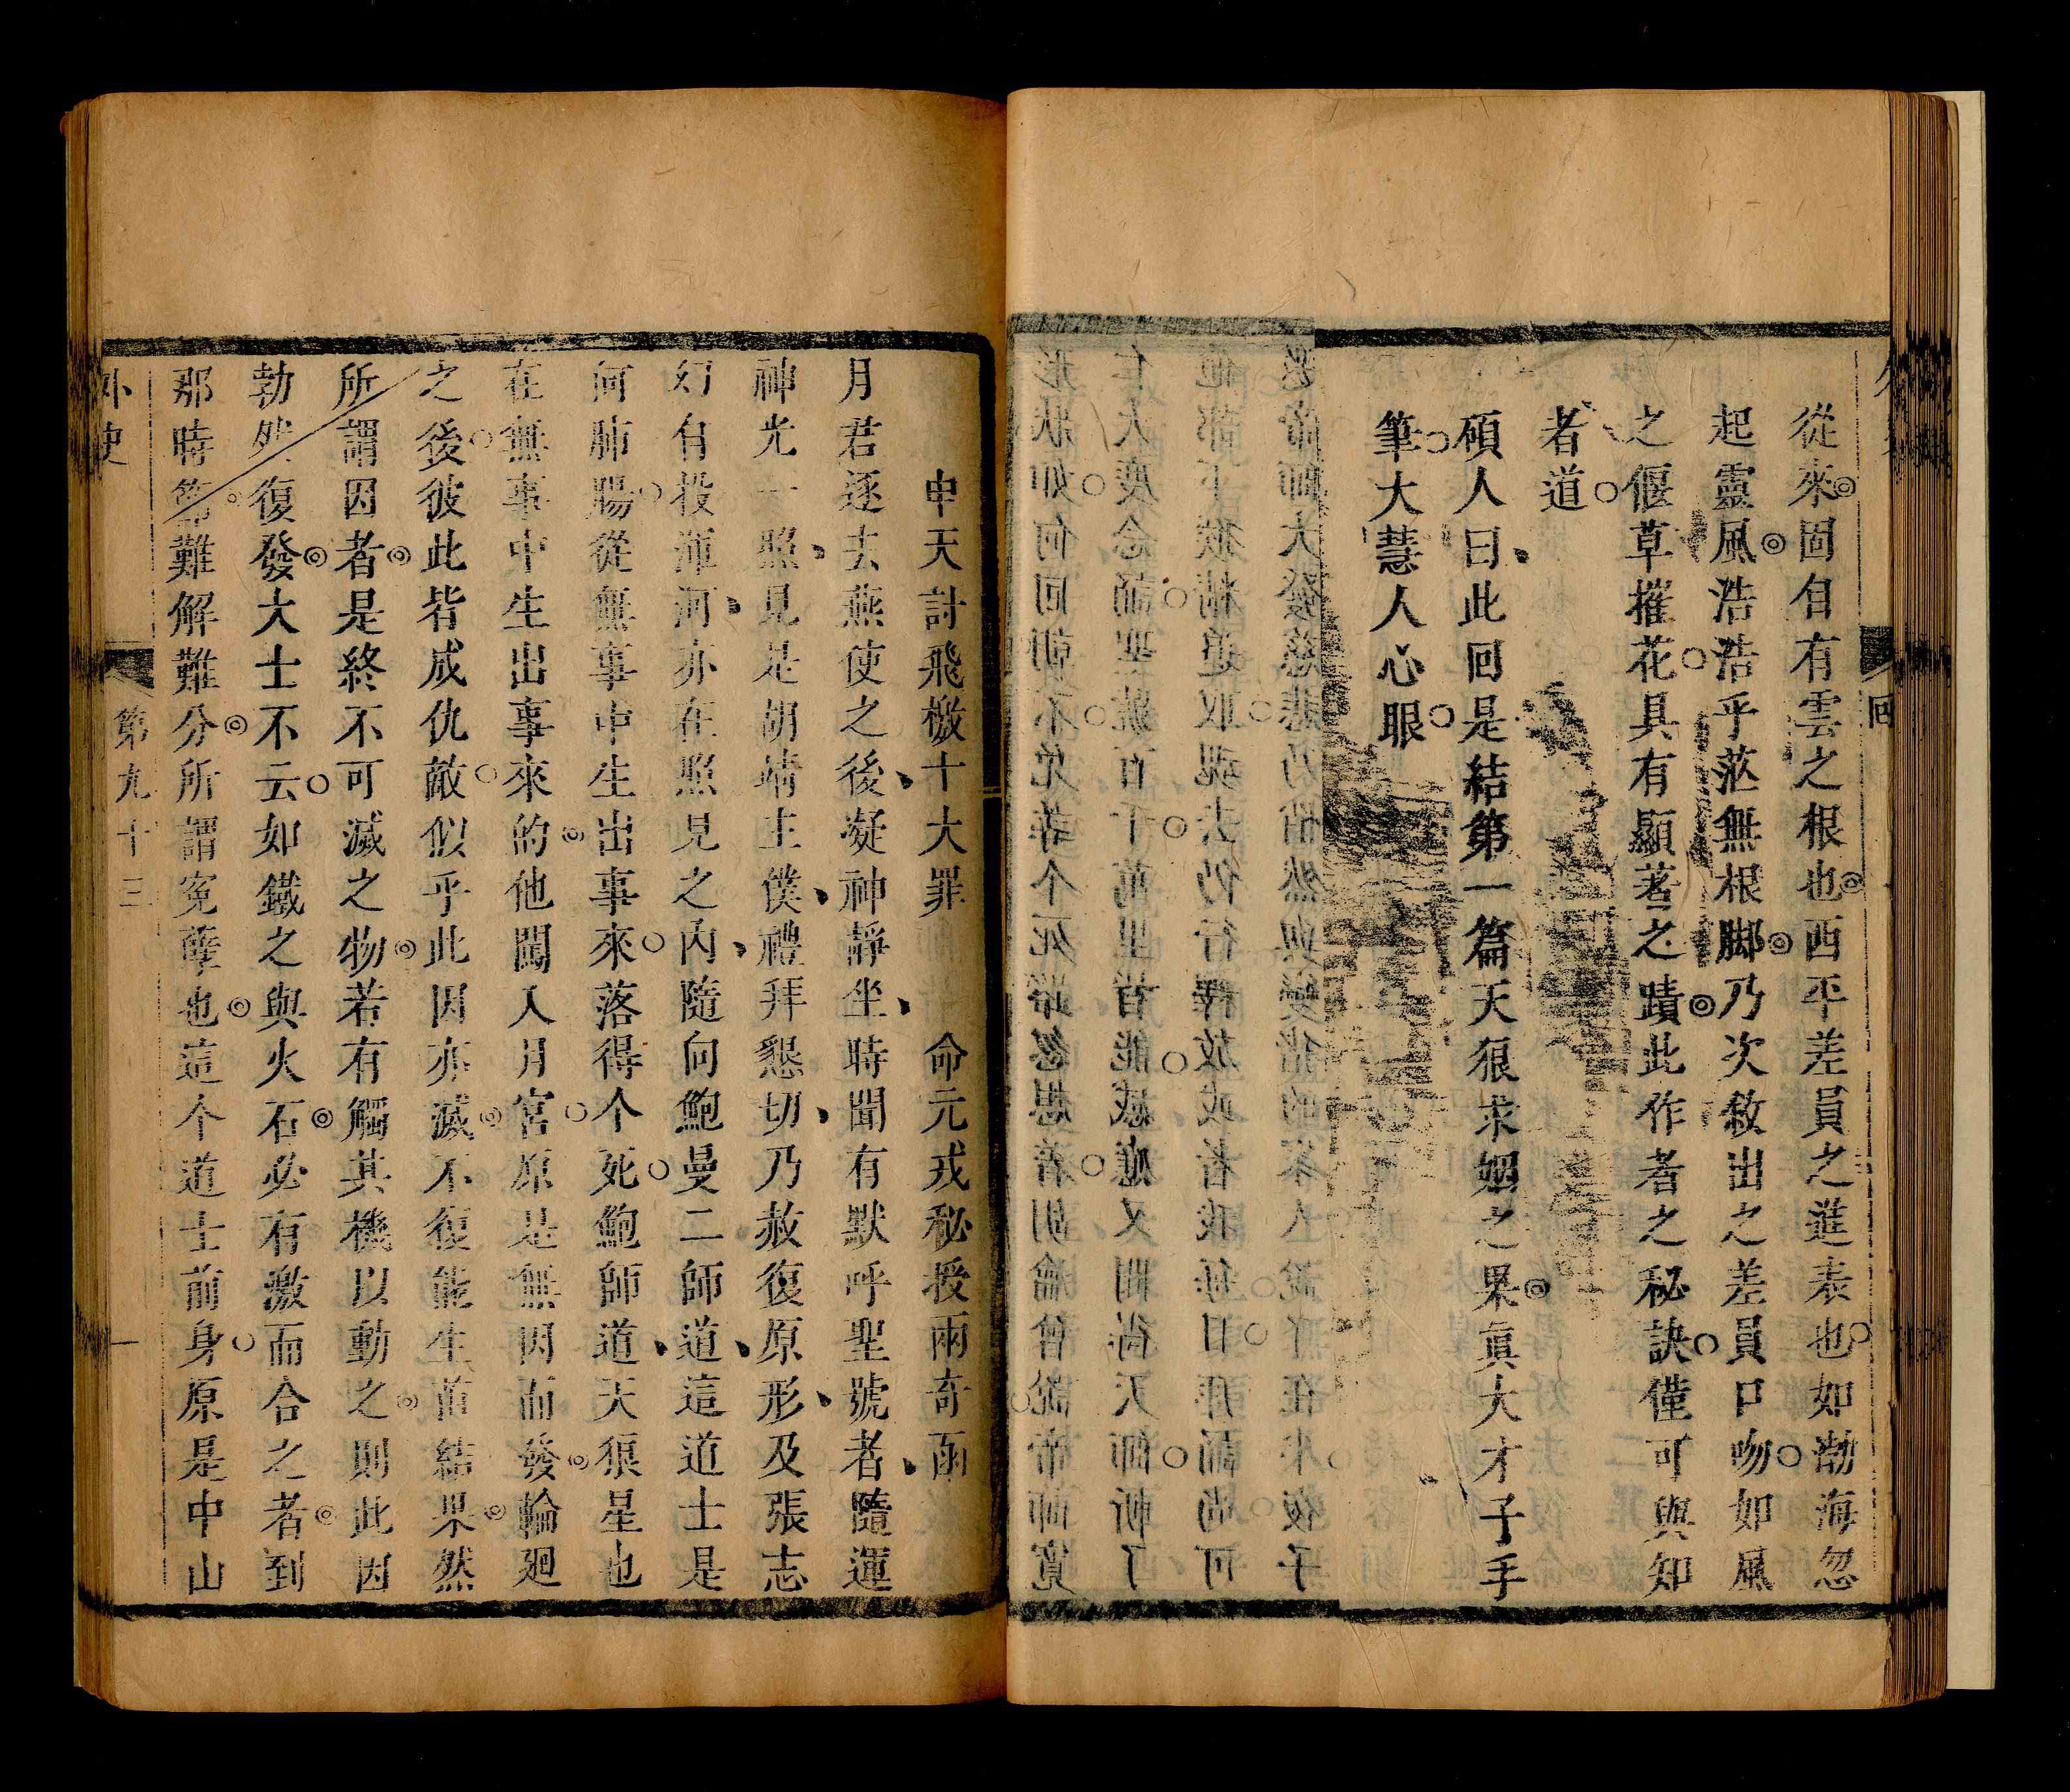 從來固自有雲之根也西平差員之進表也如渤海忽
起靈風浩浩乎茫無根脚乃次敘出之差員口吻如風
之偃草摧花具有顯著之蹟此作者之秘訣僅可與知
者道
碩人曰此回是結第一篇天狼求姻之果眞大才子手
筆大慧人心眼
申天討飛檄十大罪 命元戎秘授兩奇函
月君逐去燕使之後凝神靜坐時聞有默呼聖號者隨運
神光一照見是胡靖主僕禮拜懇切乃赦復原形及張志
幻自投渾河亦在照見之內隨向鮑曼二師道這道士是
何肺腸從無事中生出事來落得个死鮑師道天狼星也
在無事中生出事來的他闖入月宮原是無因而發輪廻
之後彼此皆成仇敵似乎此因亦滅不復能生苗結果然
所謂因者是終不可滅之物若有觸其機以動之則此因
勃然復發大士不云如鐵之與火石必有激而合之者到
那時節難解難分所謂冤孽也這个道士前身原是中山
外史 第九十三 一